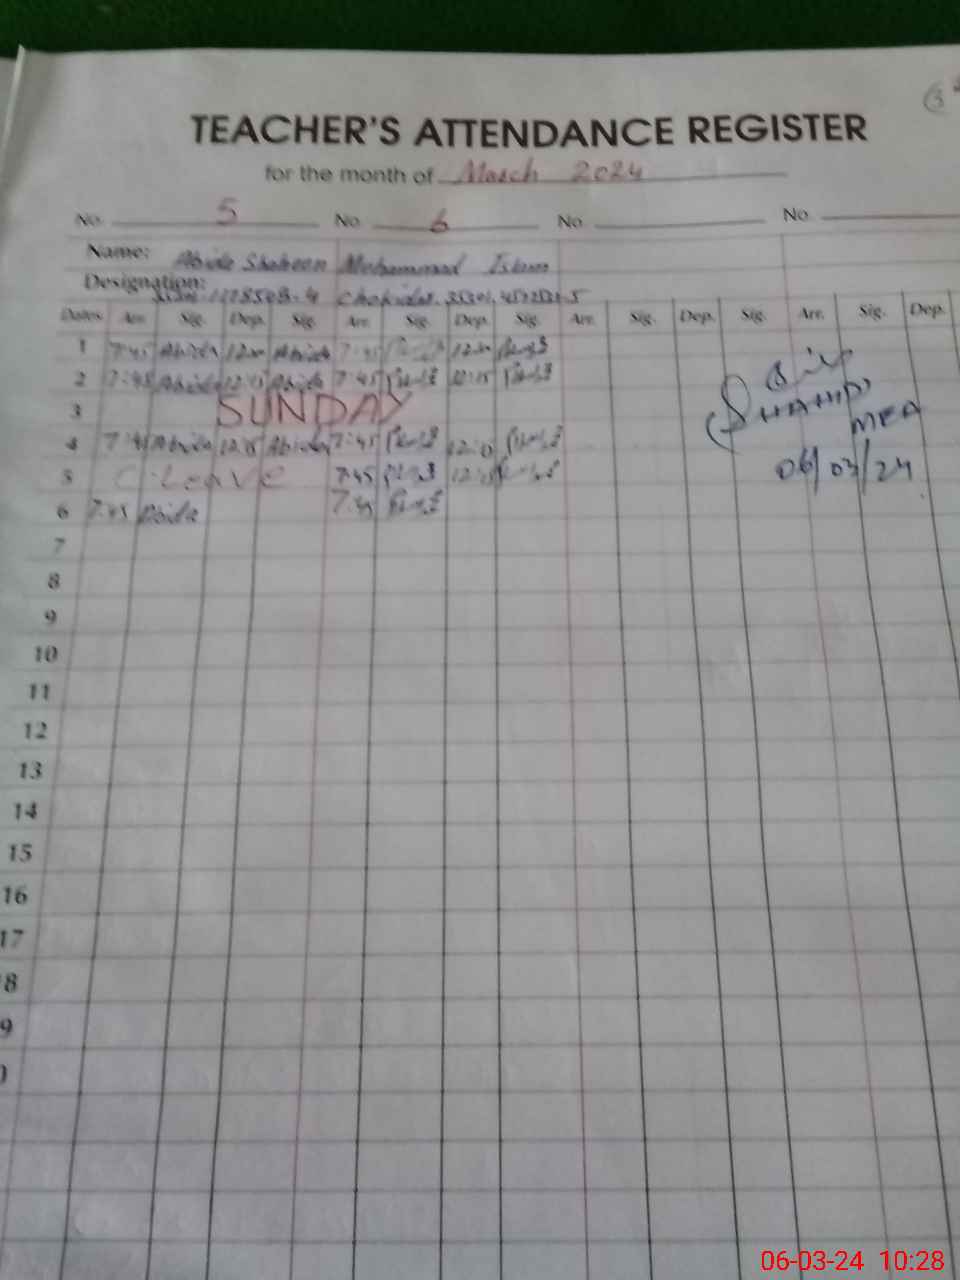 3
TEACHER'S ATTENDANCE REGISTER
for the month of March 2024
No. 5 No. 6 No. No.
Name: Abida Shaheen Mohammad Islam
Designation: Chokidar
Dates Arr. Sig. Dep. Sig. Arr. Sig. Dep. Sig. Arr. Sig. Dep. Sig. Arr. Sig. Dep.
1 7:45 Abida 12:00 Abida 7:45 12:00
2 7:45 Abida 12:15 Abida 7:45 12:15
3 SUNDAY
4 7:45 Abida 12:15 Abida 7:45 12:15
5 C-Leave 7:45 12:15
6 7:45 Abida 7:45
MEA
06/03/24
7
8
9
10
11
12
13
14
15
16
17
8
9
06-03-24 10:28